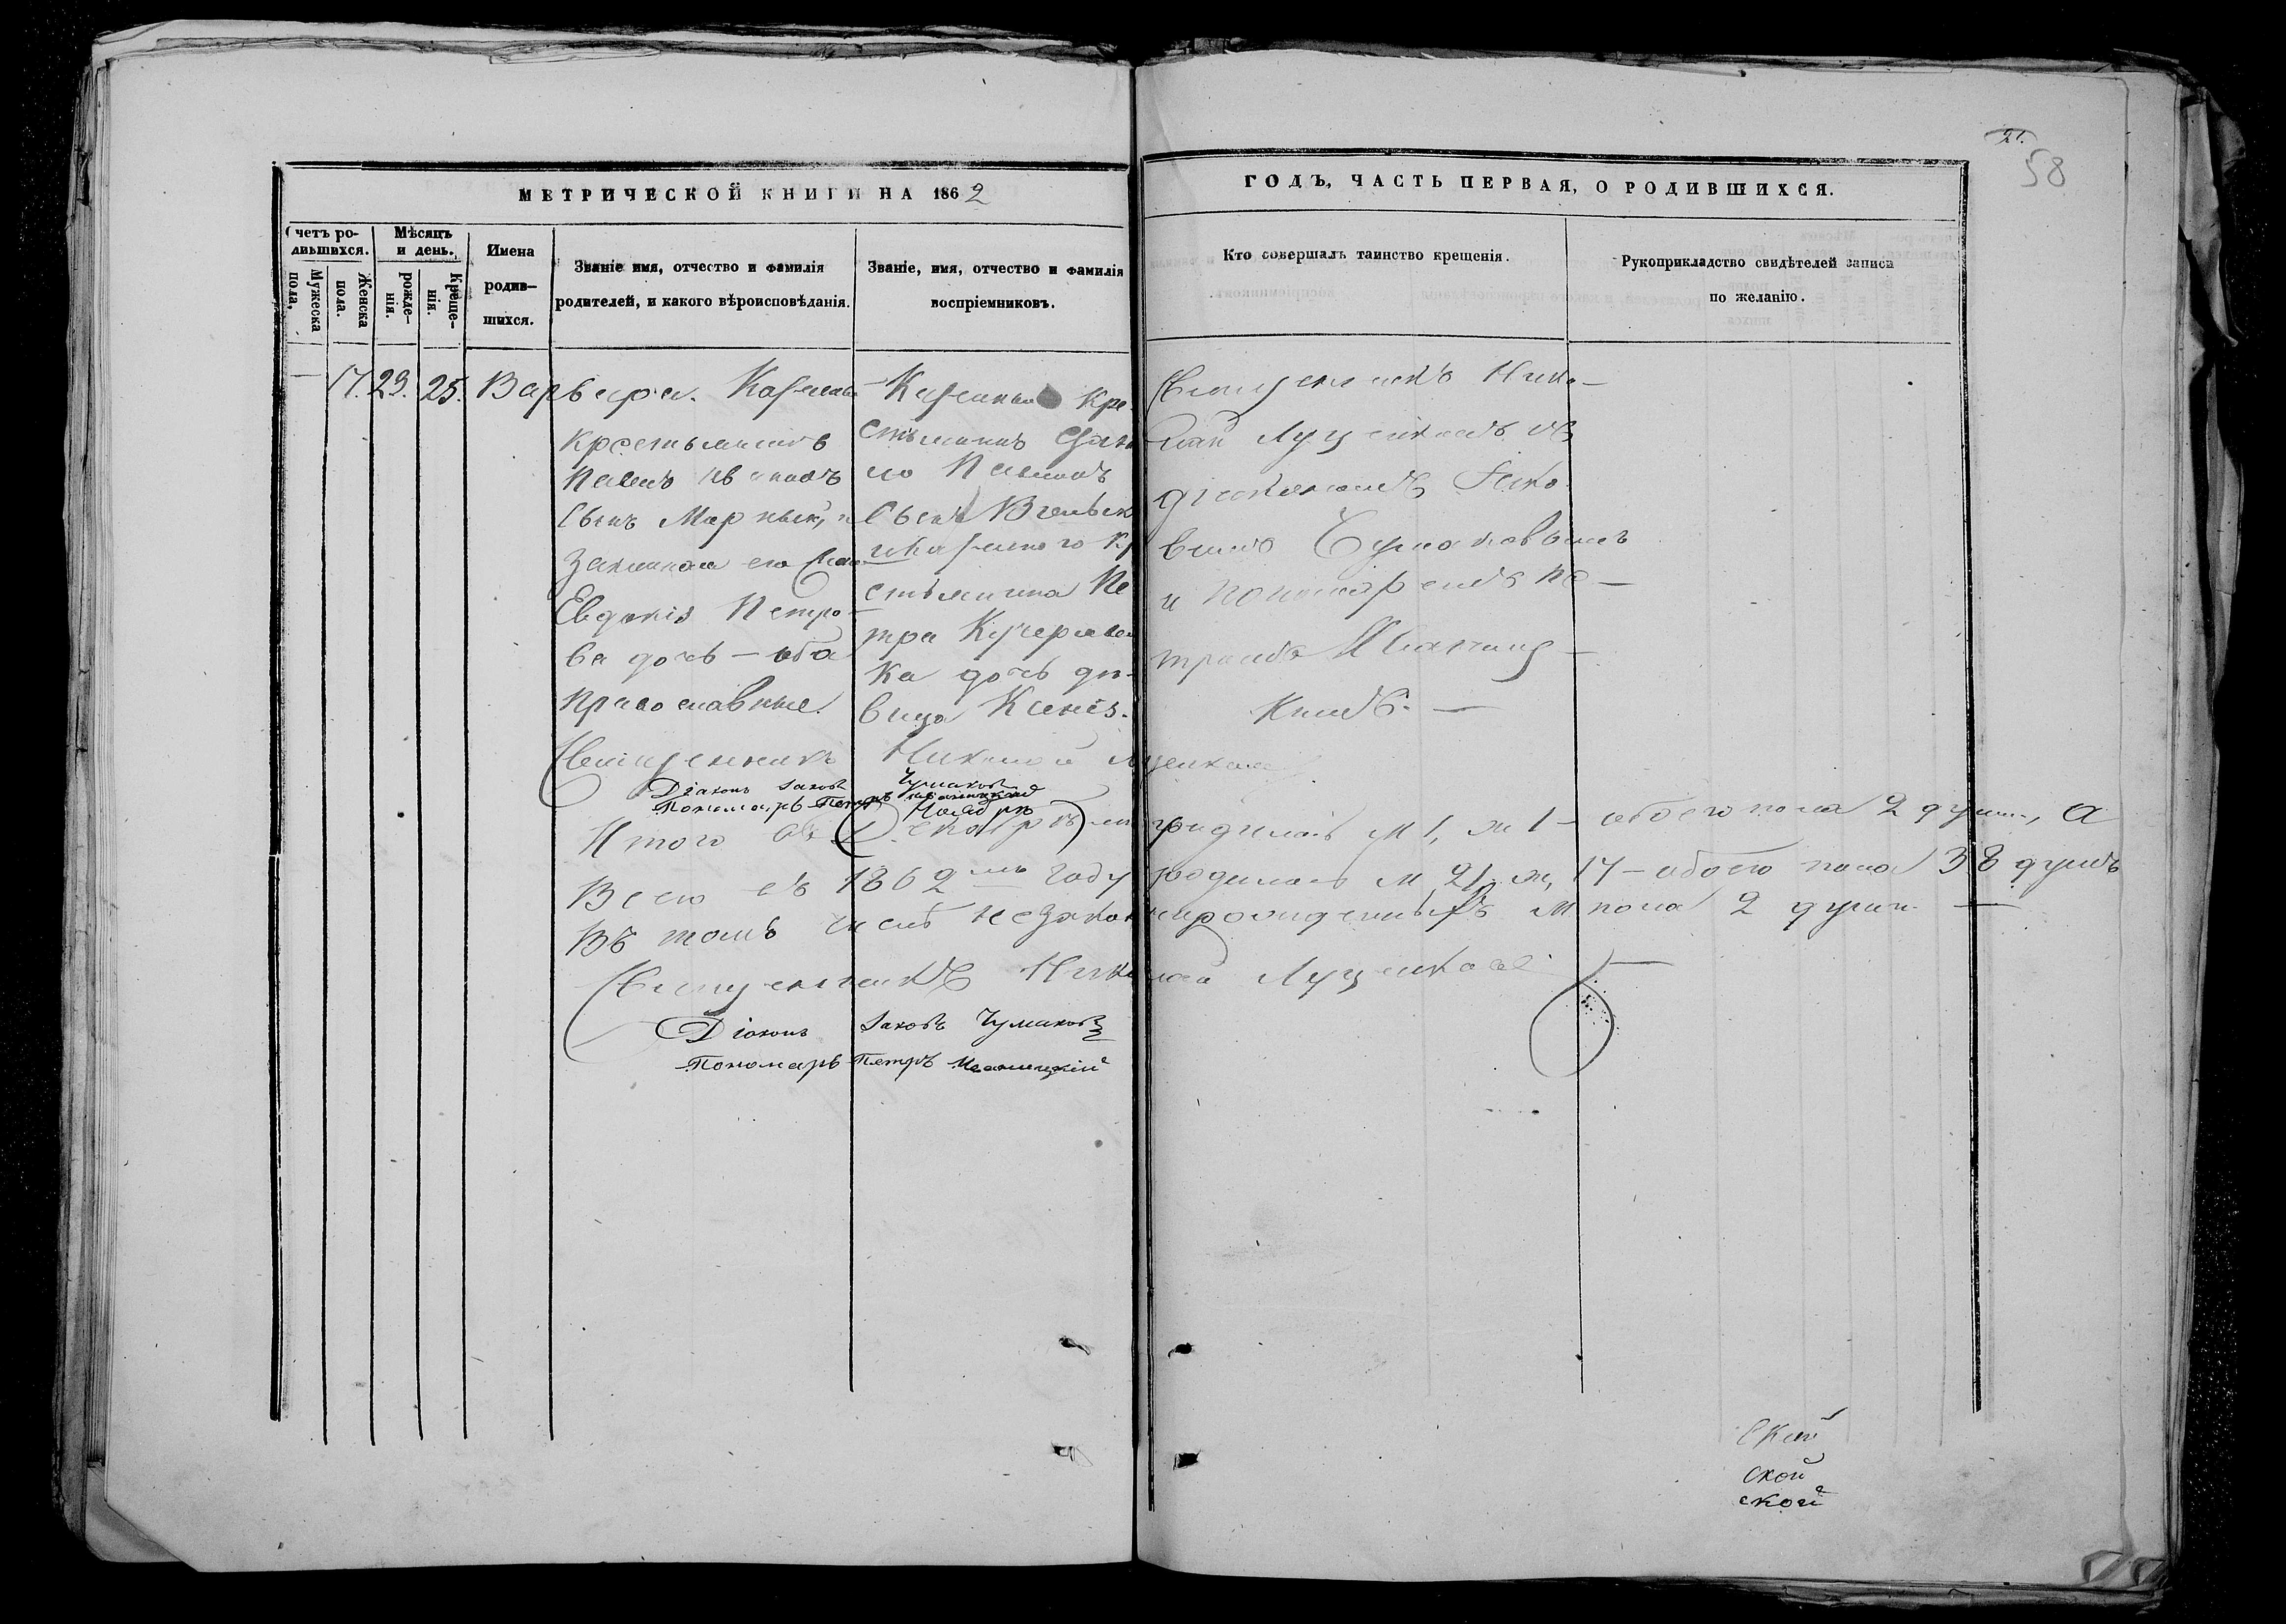 21.
58
МЕТРИЧЕСКОЙ КНИГИ НА 1862
ГОДЪ, ЧАСТЬ ПЕРВАЯ, О РОДИВШИХСЯ.
Счетъ родившихся.
Мужеска пола,
Женска пола.
Мѣсяцъ и день.
рожденія.
Крещенія.
Имена родившихся.
Званіе имя, отчество и фамилія
родителей, и какого вѣроисповѣданія.
Званіе, имя, отчество и фамилія
воспріемниковъ.
Кто совершалъ таинство крещенія.
Рукоприкладство свидѣтелей записи
по желанію.
— 17. 23. 25. Варвара.
крестьянинъ
Павелъ Ивановъ
сынъ
законная его жена
Евдокія Петро-
ва дочь — оба
православные.
Кре-
стьянинъ
Павловъ
сынъ
стьянина Пе
тра
ка дочь дѣ-
вица
Священникъ Нико-
лай Луценковъ съ
діакономъ Іако-
вомъ Чумаковымъ
и пономаремъ Пе-
тромъ Иваниц-
кимъ. —
Священникъ Николай Луценковъ
Діаконъ Іаковъ Чумаковъ
Пономарь Петръ Иваницкій
Итого въ Декабрѣ м. родилось м 1, ж 1 — обоего пола 2 души, а
Всего въ 1862мъ году родилось м 21, ж, 17 — обоего пола 38 душъ
Въ томъ числѣ незаконнорожденныхъ м пола 2 души —
Священникъ Николай Луценковъ —
Діаконъ Іаковъ Чумаковъ
Пономарь Петръ Иваницкій
ской
ской
ской